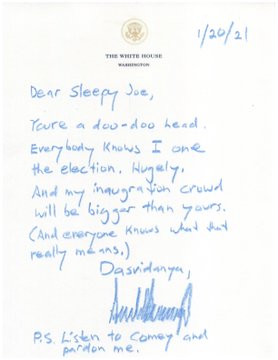 THE WHITE HOUSE
WASHINGTON
1/20/21
Dear Sleepy Joe,
You're a doo-doo head.
Everybody knows I one
the election. Hugely.
And my inaugration crowd
will be bigger than yours.
(And everyone knows what that
really means.)
Dasvidanya,
P.S. Listen to Comey and
pardon me.